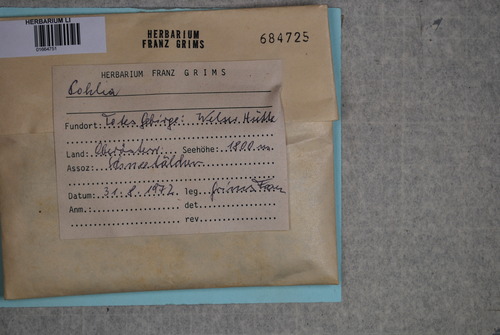 HERBARIUM LI
HERBARIUM
FRANZ GRIMS
684725
HERBARIUM FRANZ GRIMS
Fundort: Totes Gebirge: Welser Hütte
Land: Oberösterr. Seehöhe: 1800 m
Assoz: Schneetälchen
Datum: 31.8.1972 leg. Grims Franz
Anm.: det.
rev.